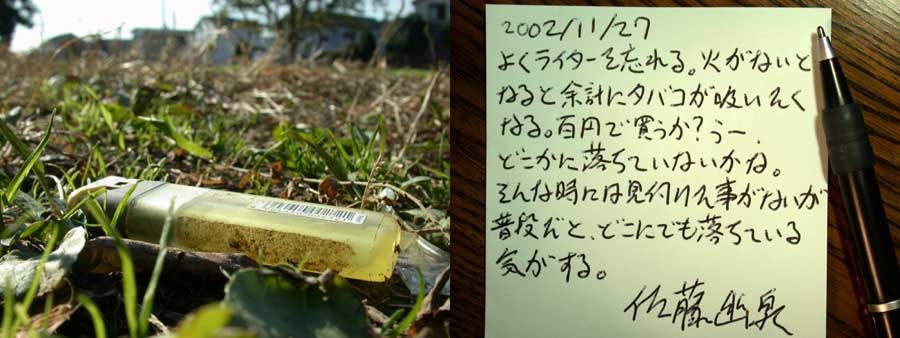 2002/11/27
よくライターを忘れる。火がないと
なると余計にタバコが吸いたく
なる。百円で買うか?うー
どこかに落ちていないかな。
そんな時には見付けた事がないが
普段だと、どこにでも落ちている
気がする。
佐藤幽泉